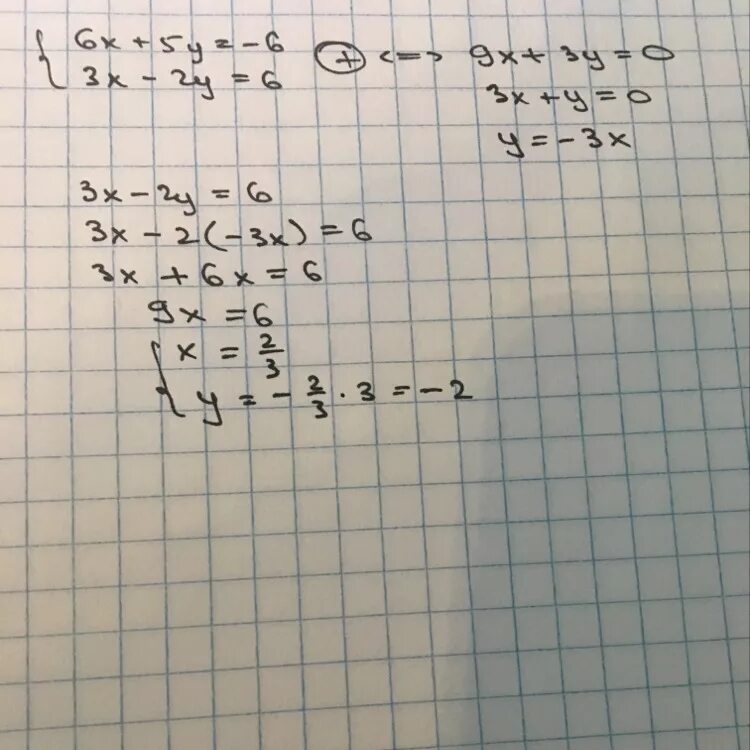 { 6x + 5y = -6
3x - 2y = 6
⊕ <=> 9x + 3y = 0
3x + y = 0
y = -3x
3x - 2y = 6
3x - 2(-3x) = 6
3x + 6x = 6
9x = 6
{ x = 2/3
y = - 2/3 · 3 = -2